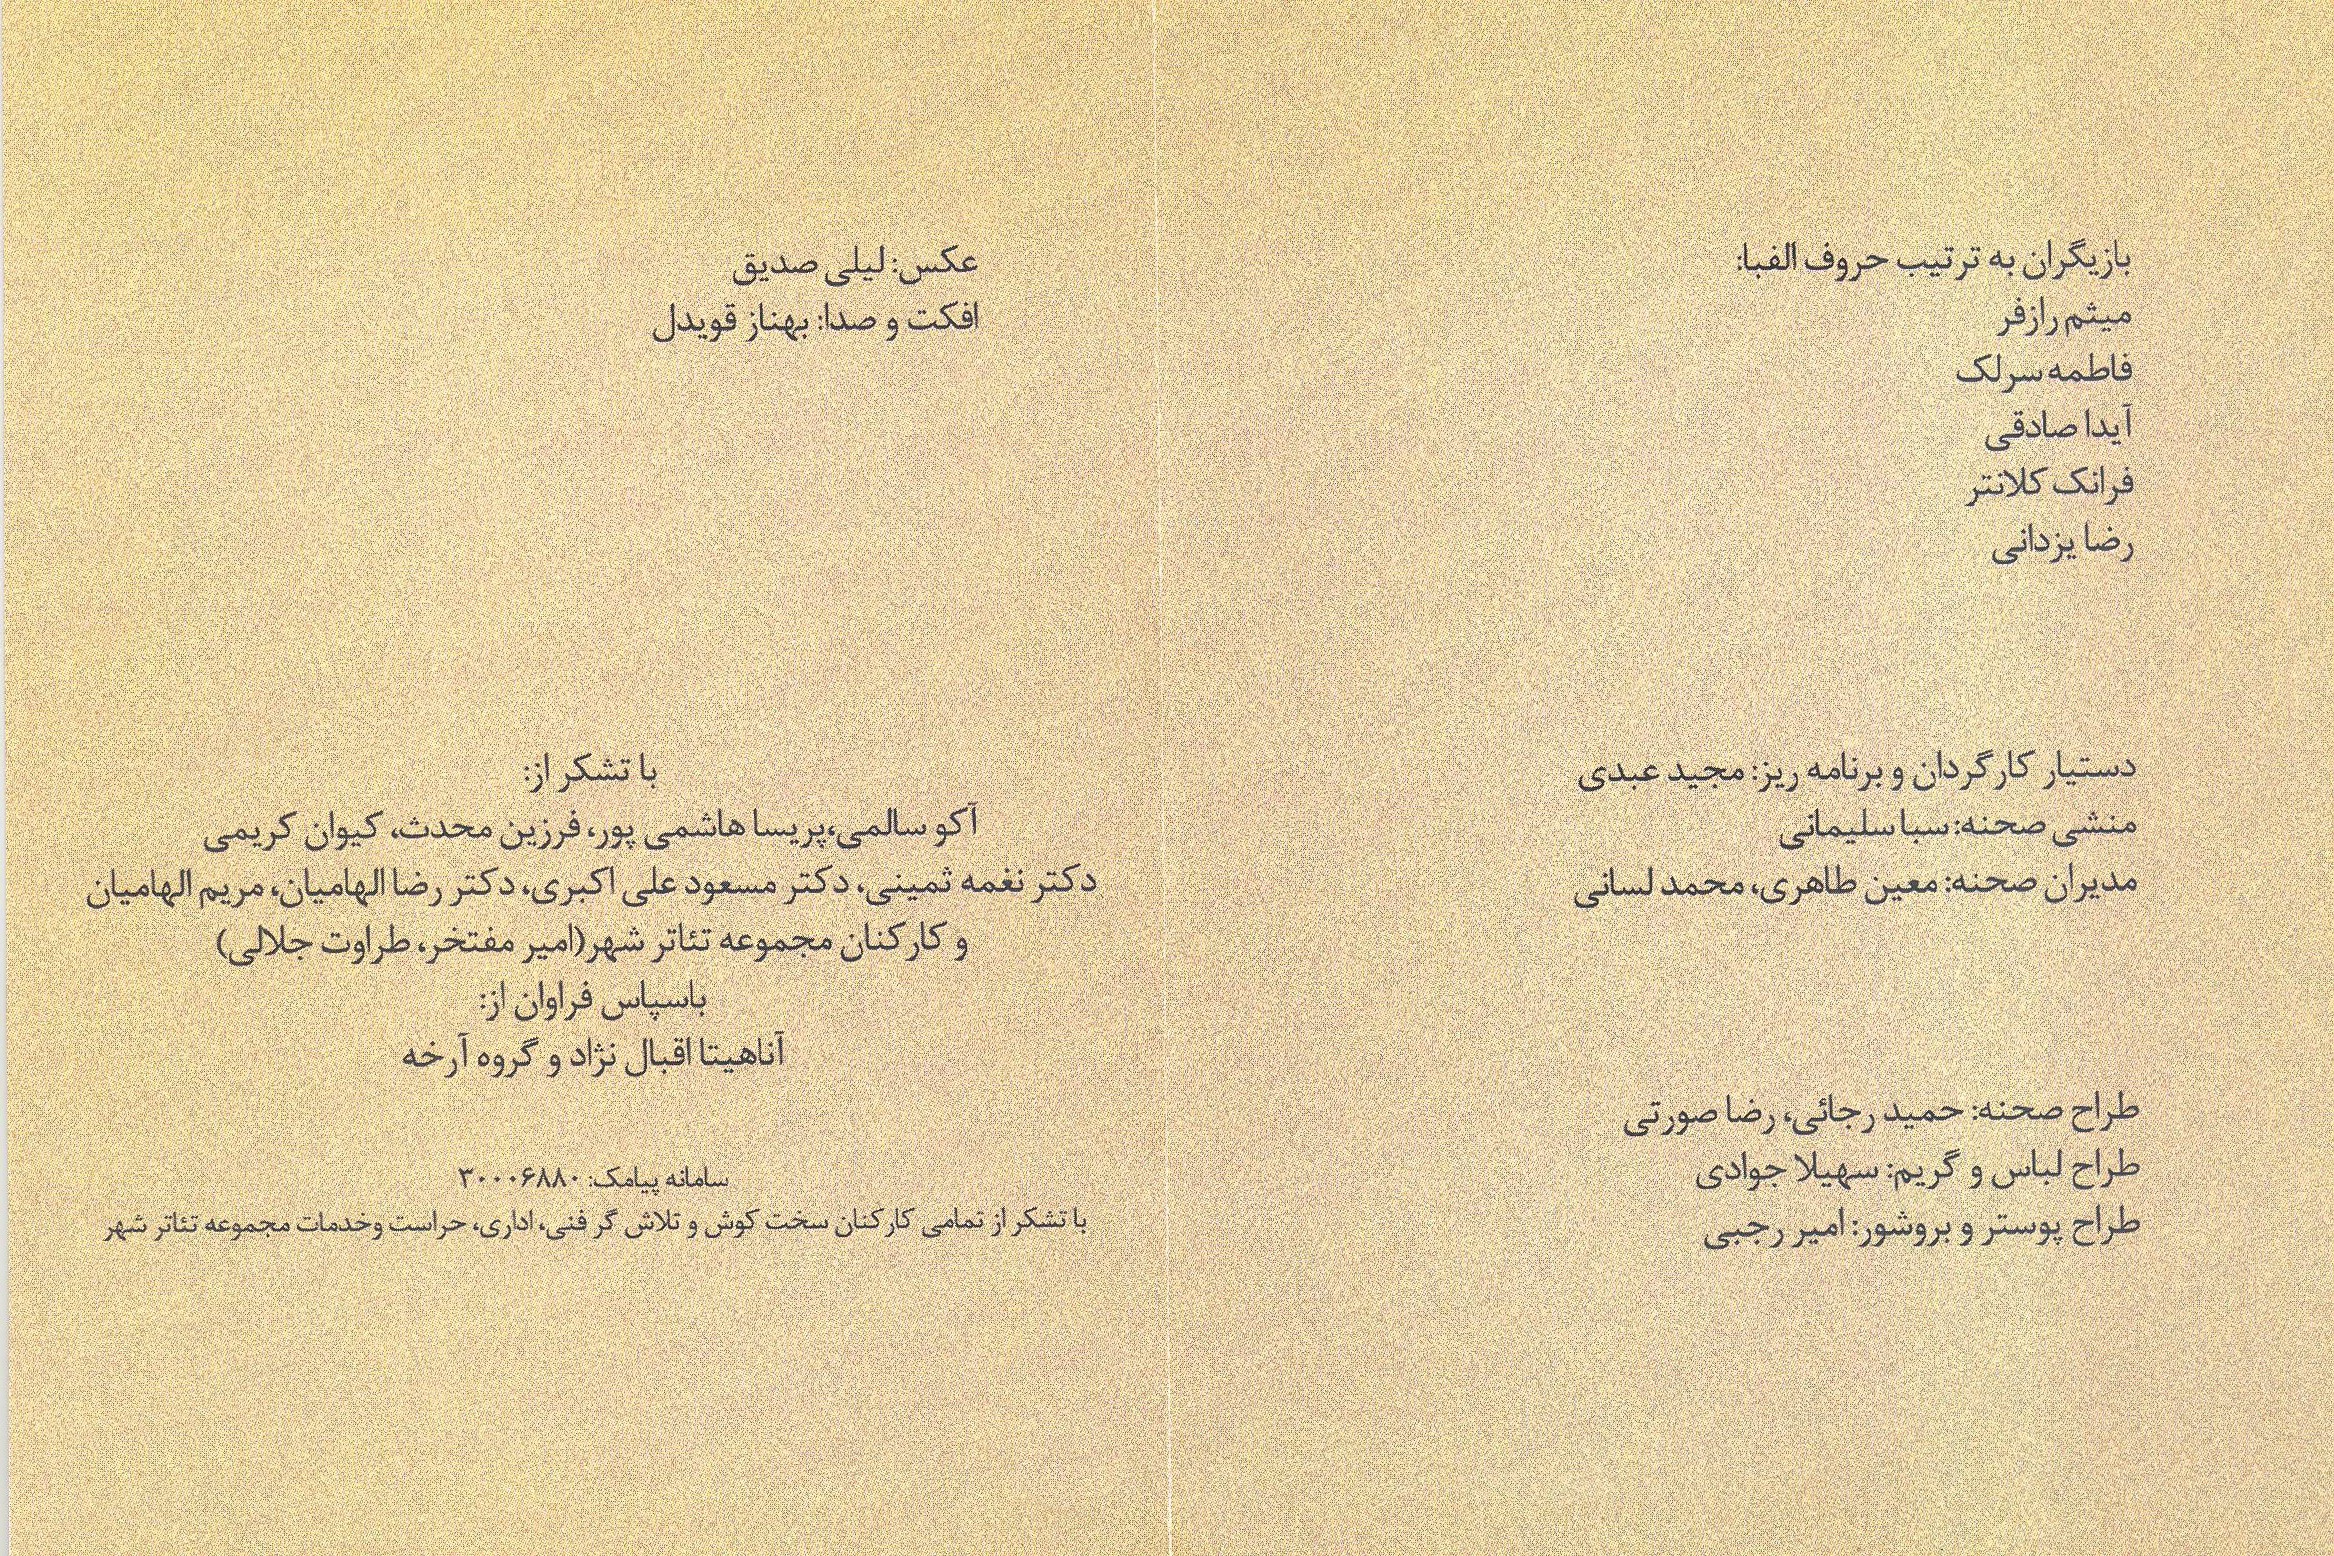 بازیگران به ترتیب حروف الفبا:
میثم رازفر
فاطمه سرلک
آیدا صادقی
فرانک کلانتر
رضا یزدانی
دستیار کارگردان و برنامه ریز: مجید عبدی
منشی صحنه: سبا سلیمانی
مدیران صحنه: معین طاهری، محمد لسانی
طراح صحنه: حمید رجائی، رضا صورتی
طراح لباس و گریم: سهیلا جوادی
طراح پوستر و بروشور: امیر رجبی
عکس: لیلی صدیق
افکت و صدا: بهناز قویدل
با تشکر از:
آکو سالمی،پریسا هاشمی پور، فرزین محدث، کیوان کریمی
دکتر نغمه ثمینی، دکتر مسعود علی اکبری، دکتر رضا الهامیان، مریم الهامیان
و کارکنان مجموعه تئاتر شهر(امیر مفتخر، طراوت جلالی)
باسپاس فراوان از:
آناهیتا اقبال نژاد و گروه آرخه
سامانه پیامک: ۳۰۰۰۶۸۸۰
با تشکر از تمامی کارکنان سخت کوش و تلاش گر فنی، اداری، حراست وخدمات مجموعه تئاتر شهر